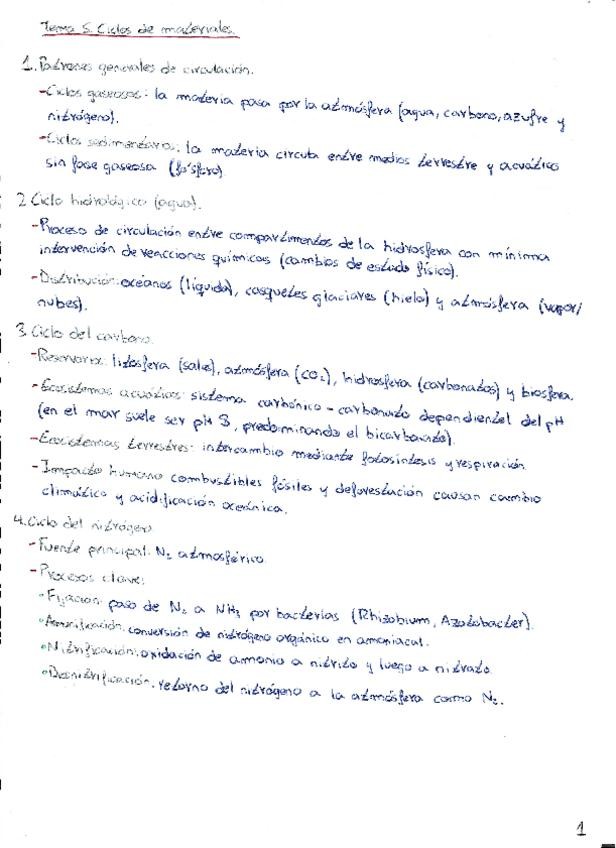 Tema 5. Ciclos de materiales.
1. Patrones generales de circulación.
-Ciclos gaseosos: la materia pasa por la atmósfera (agua, carbono, azufre y
nitrógeno).
-Ciclos sedimentarios: la materia circula entre medios terrestre y acuático
sin fase gaseosa (fósforo).
2. Ciclo hidrológico (agua).
-Proceso de circulación entre compartimentos de la hidrosfera con mínima
intervención de reacciones químicas (cambios de estado físico).
-Distribución: océanos (líquida), casquetes glaciares (hielo) y atmósfera (vapor/
nubes).
3. Ciclo del carbono.
-Reservorios: litosfera (sales), atmósfera (CO₂), hidrosfera (carbonatos) y biosfera.
-Ecosistemas acuáticos: sistema carbónico-carbonato dependiente del pH
(en el mar suele ser pH 8, predominando el bicarbonato).
-Ecosistemas terrestres: intercambio mediante fotosíntesis y respiración.
-Impacto humano: combustibles fósiles y deforestación causan cambio
climático y acidificación oceánica.
4. Ciclo del nitrógeno
-Fuente principal: N₂ atmosférico.
-Procesos clave:
•Fijación: paso de N₂ a NH₃ por bacterias (Rhizobium, Azotobacter).
•Amonificación: conversión de nitrógeno orgánico en amoniacal.
•Nitrificación: oxidación de amonio a nitrito y luego a nitrato.
•Desnitrificación: retorno del nitrógeno a la atmósfera como N₂.
1